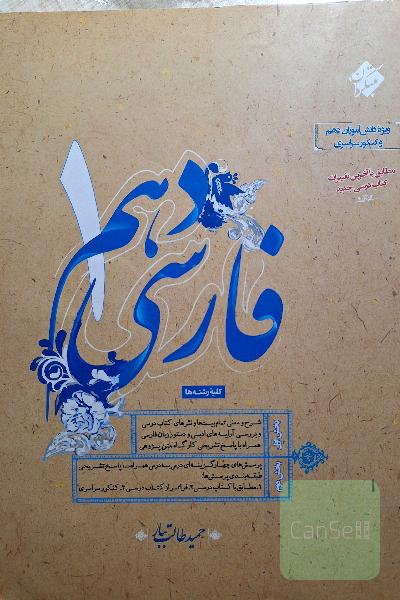 مبتکران
ویژهٔ دانش‌آموزان دهم
و کنکور سراسری
مطابق با آخرین تغییرات
کتاب درسی جدید
فارسی دهم ۱
کلیهٔ رشته‌ها
بخش اول
شرح و معنی تمام بیت‌ها و نثرهای کتاب درسی
و بررسی آرایه‌های ادبی و دستور زبان فارسی
همراه با پاسخ تشریحی کارگاه متن پژوهی
بخش دوم
پرسش‌های چهارگزینه‌ای درس به درس همراه با پاسخ تشریحی
طبقه‌بندی پرسش‌ها:
۱. مطابق با کتاب درسی ۲. فراتر از کتاب درسی ۳. کنکور سراسری
حمید طالب تبار
CanSell